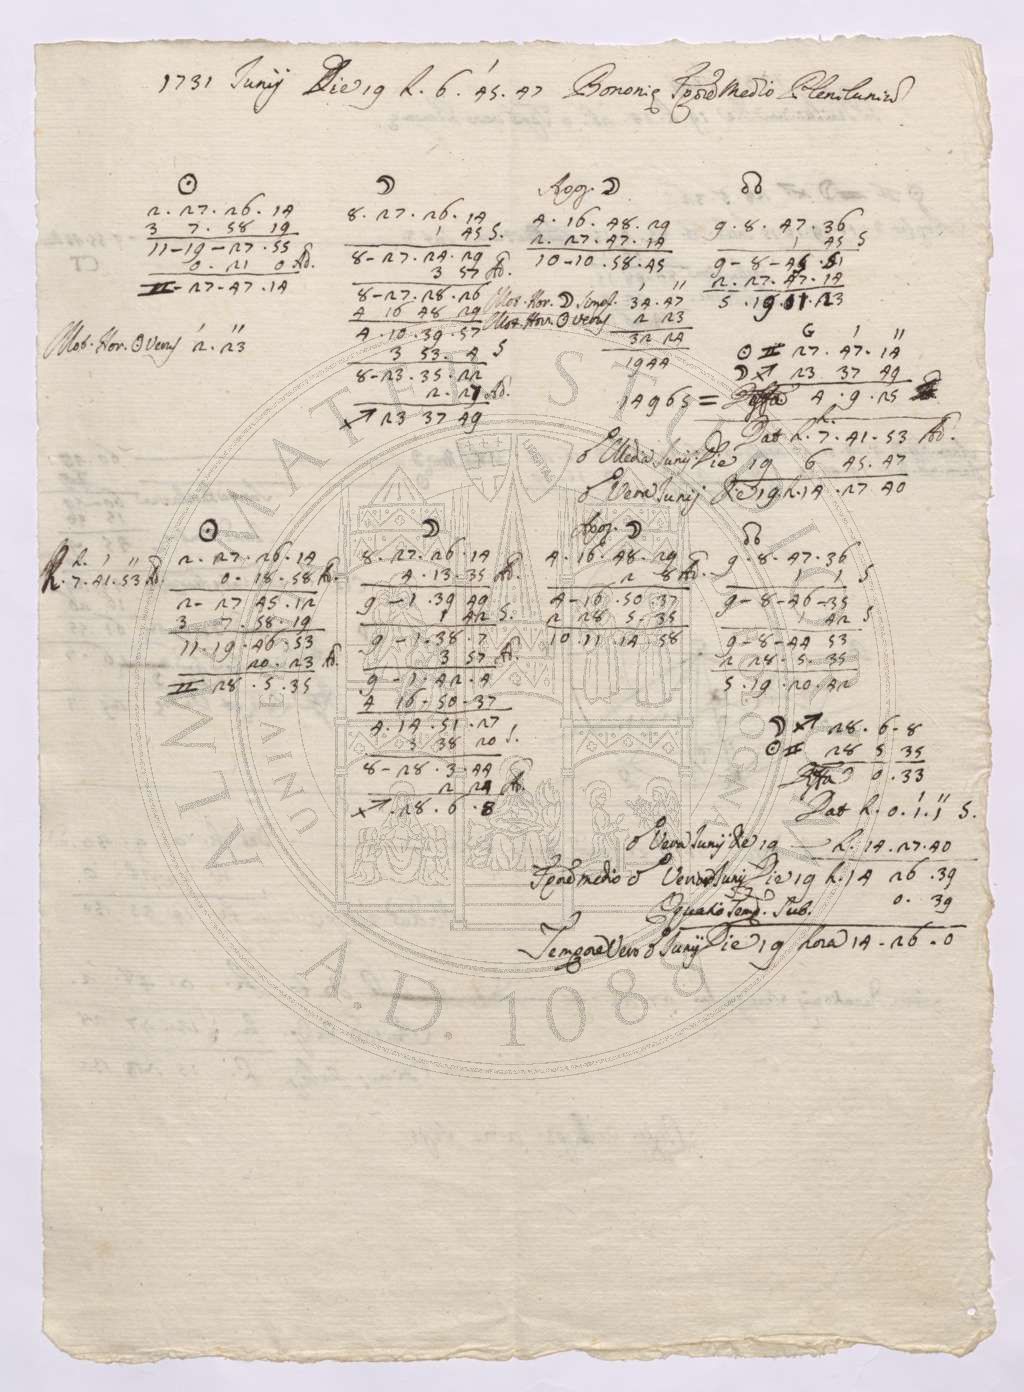 1731 Junij Die 19 h. 6. 45. 47 Bononiæ Tpore Medio Plenilunium
☉
2. 27. 26. 14
3 7. 58 19
11-19-27.55
0. 21 0. Ad.
♊-27-47.14
Mot. Hor. ☉ verus 2. 23
☽
8. 27. 26. 14
1 45 S.
8-27.24.29
3 57 Ad.
8-27.28.26
4 16 48 29
4. 10. 39. 57
3 53. 4 S
8-23. 35. 22
2. 27 Ad.
♐ 23 37 49
Apog. ☽
4. 16. 48. 29
2. 27. 47. 14
10-10. 58. 45
Mot. Hor. ☽ Simpl. 34. 47
Mot. Hor. ☉ verus 2 23
32 24
1944
14965 = Diffa
☊
9. 8. 47. 36
1 45 S
9-8-45 51
2. 27. 47. 14
5. 19 01 23
G ' ''
☉ ♊ 27. 47. 14
☽ ♐ 23 37 49
4. 9. 25
Dat h. 7. 41. 53 Ad.
☍ Media Junij Die 19 6 45. 47
☍ Vera Junij Die 19 h. 14. 27 40
h. ' ''
h. 7. 41. 53 Ad.
☉
2. 27. 26. 14
0. 18. 58 Ad.
2- 27 45. 12
3 7. 58. 19
11. 19. 46. 53
20. 23 Ad.
♊ 28. 5. 35
☽
8. 27. 26. 14
4. 13. 35 Ad.
9-1. 39 49
1 42 S.
9-1. 38. 7
3 57 Ad.
9-1. 42. 4
4 16-50-37
4. 14. 51. 27
3 38 20 S.
8-28. 3. 44
2 24 Ad.
♐. 28. 6. 8
Apog. ☽
4. 16. 48. 29
2 8 Ad.
4-16. 50. 37
2 28 5. 35
10. 11. 14. 58
☊
9. 8. 47. 36
1 1 S
9-8-46-35
1 42 S
9-8-44 53
2 28. 5. 35
5. 19. 20. 42
☽ ♐ 28. 6-8
☉ ♊ 28 5 35
Diffa 0. 33
Dat h. 0. 1. 1 S.
☍ Vera Junij Die 19 h. 14. 27. 40
Tpore medio ☍ Vera Junij Die 19 h. 14 26. 39
Equatio Temp. Sub. 0. 39
Tempore Vero ☍ Junij Die 19 hora 14-26-0
ALMA MATER STUDIORUM
UNIVERSITÀ DI BOLOGNA
A.D. 1088